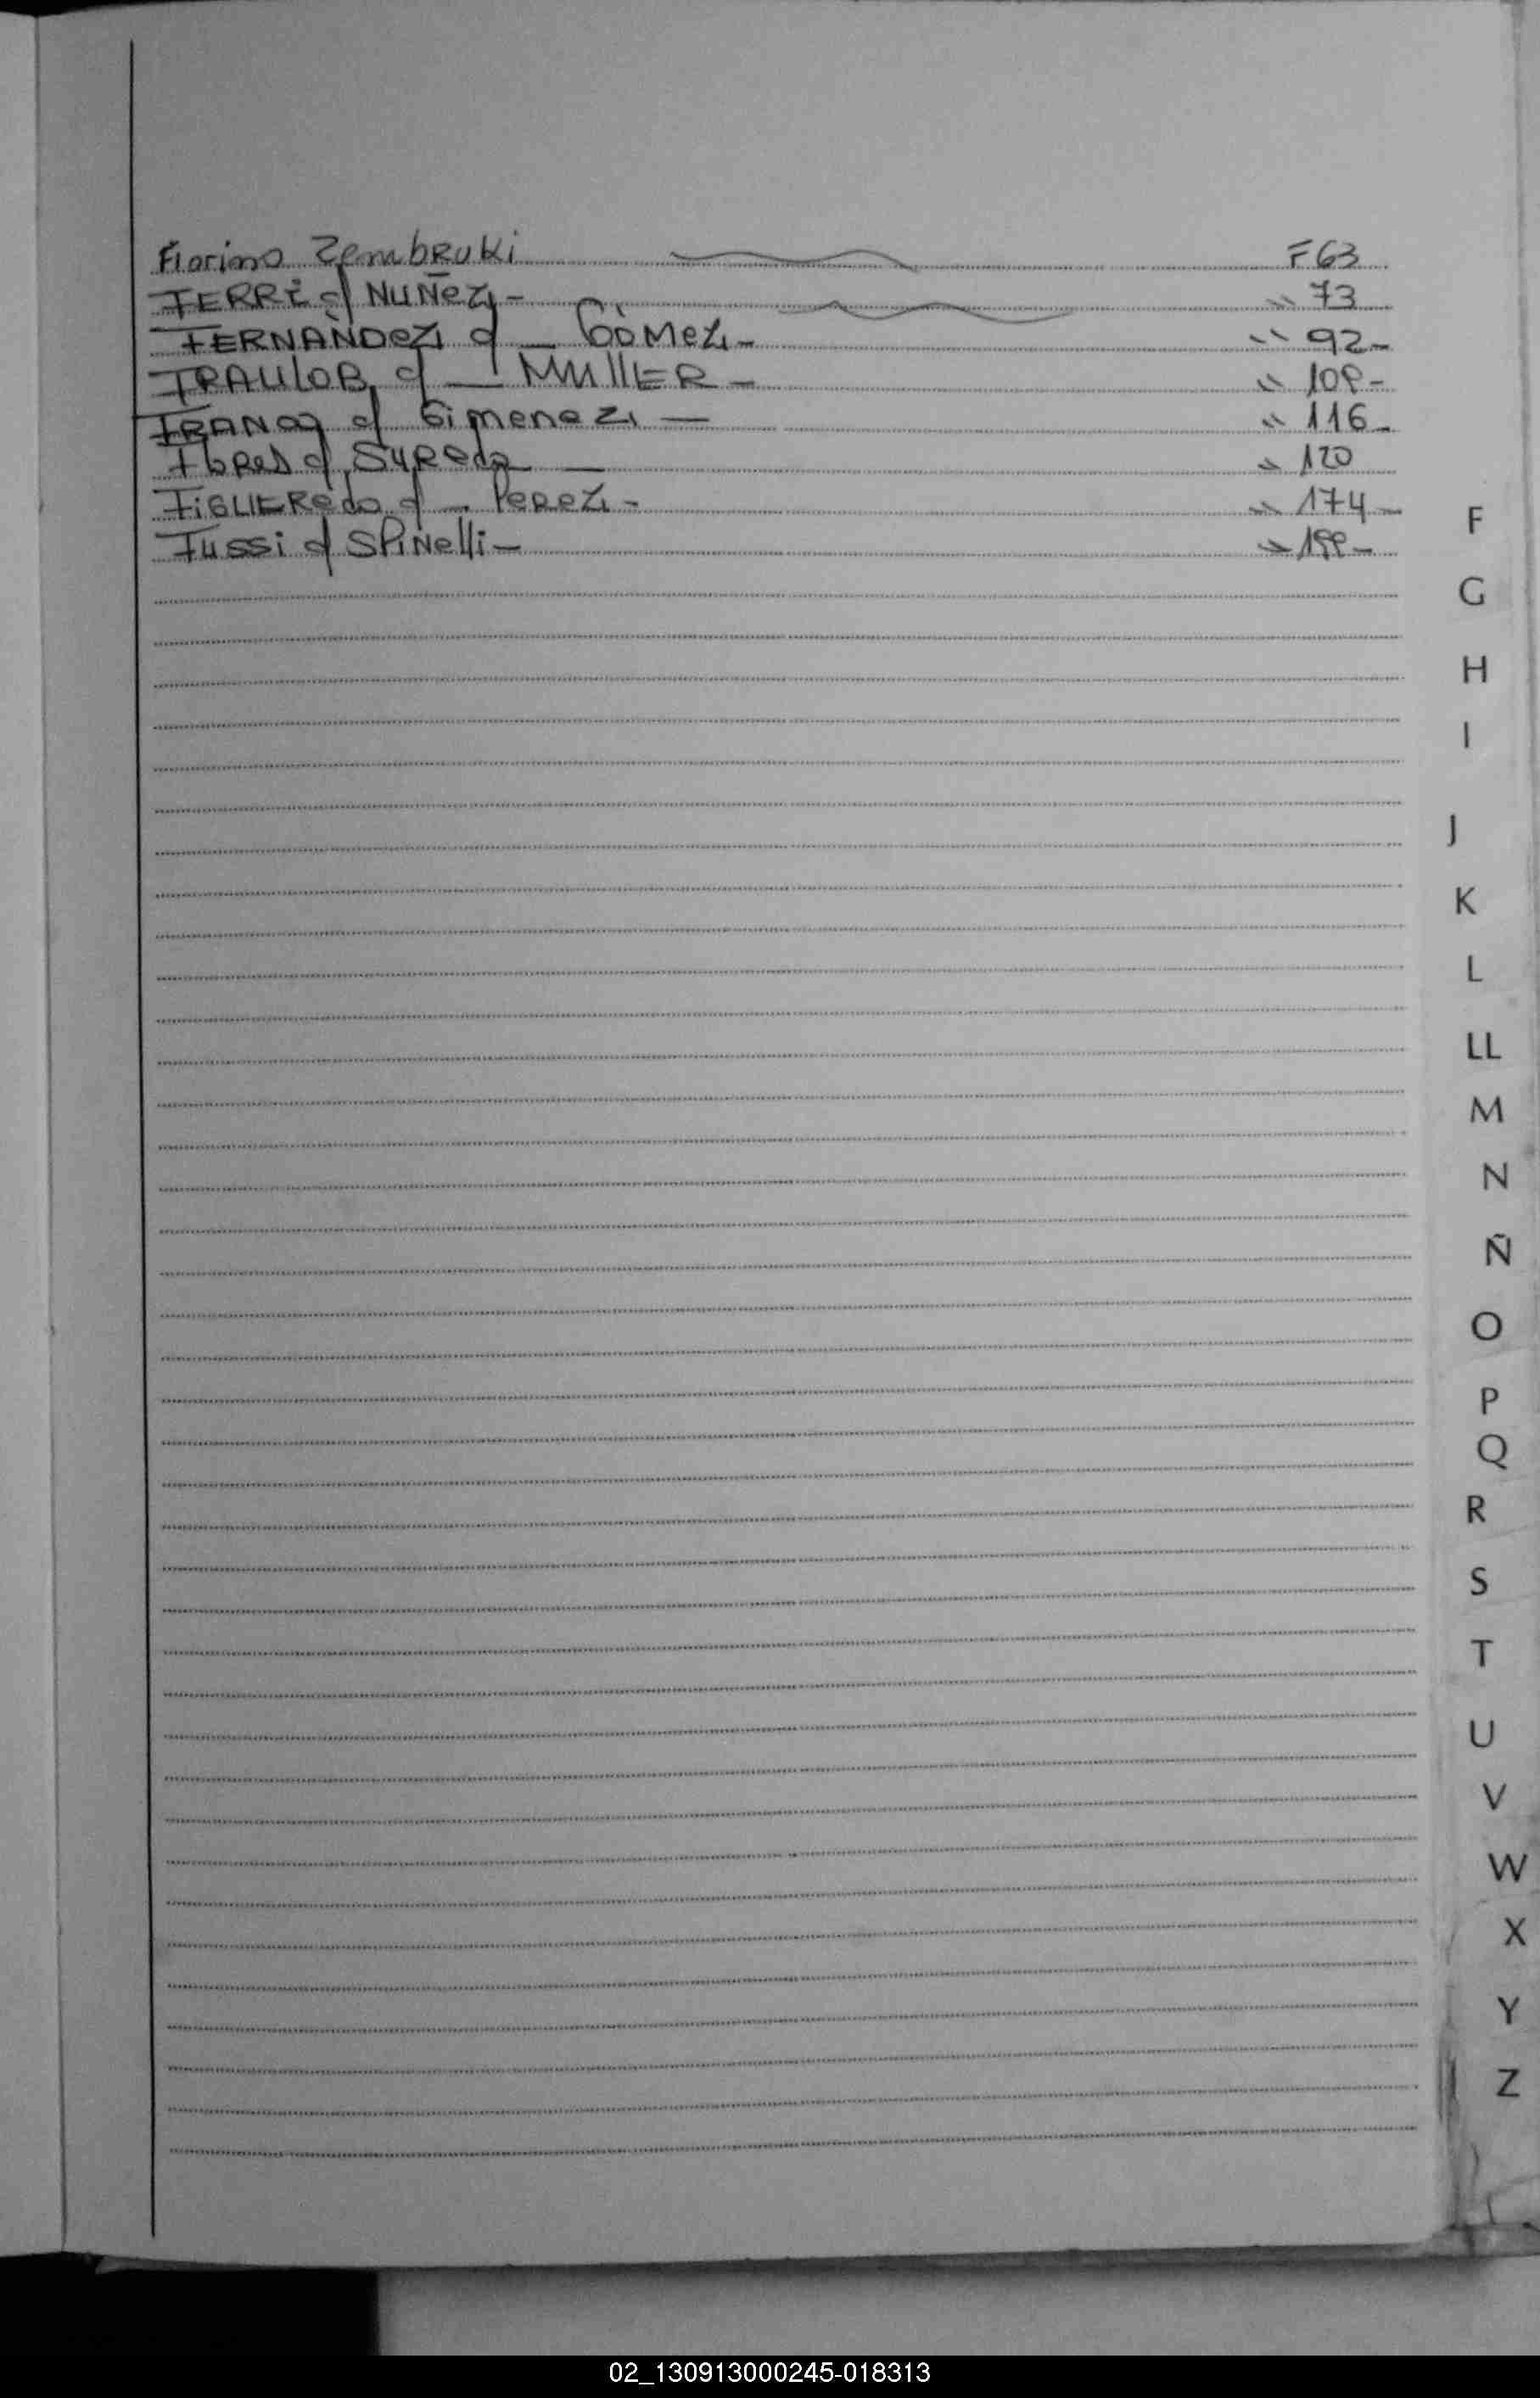 Fiorino Zembruki F63
FERRE c/ NUÑEZ - " 73
FERNANDEZ c/ - GOMEZ - " 92 -
FRAULOB c/ - MULLER - " 109 -
FRANCO c/ Gimenez - " 116 -
c/ Sureda - " 120
FIGUEREdo c/ - PeReZ - " 174 -
FUSSi c/ SPiNelli - " 199 -
F
G
H
I
J
K
L
LL
M
N
Ñ
O
P
Q
R
S
T
U
V
W
X
Y
Z
02_130913000245-018313